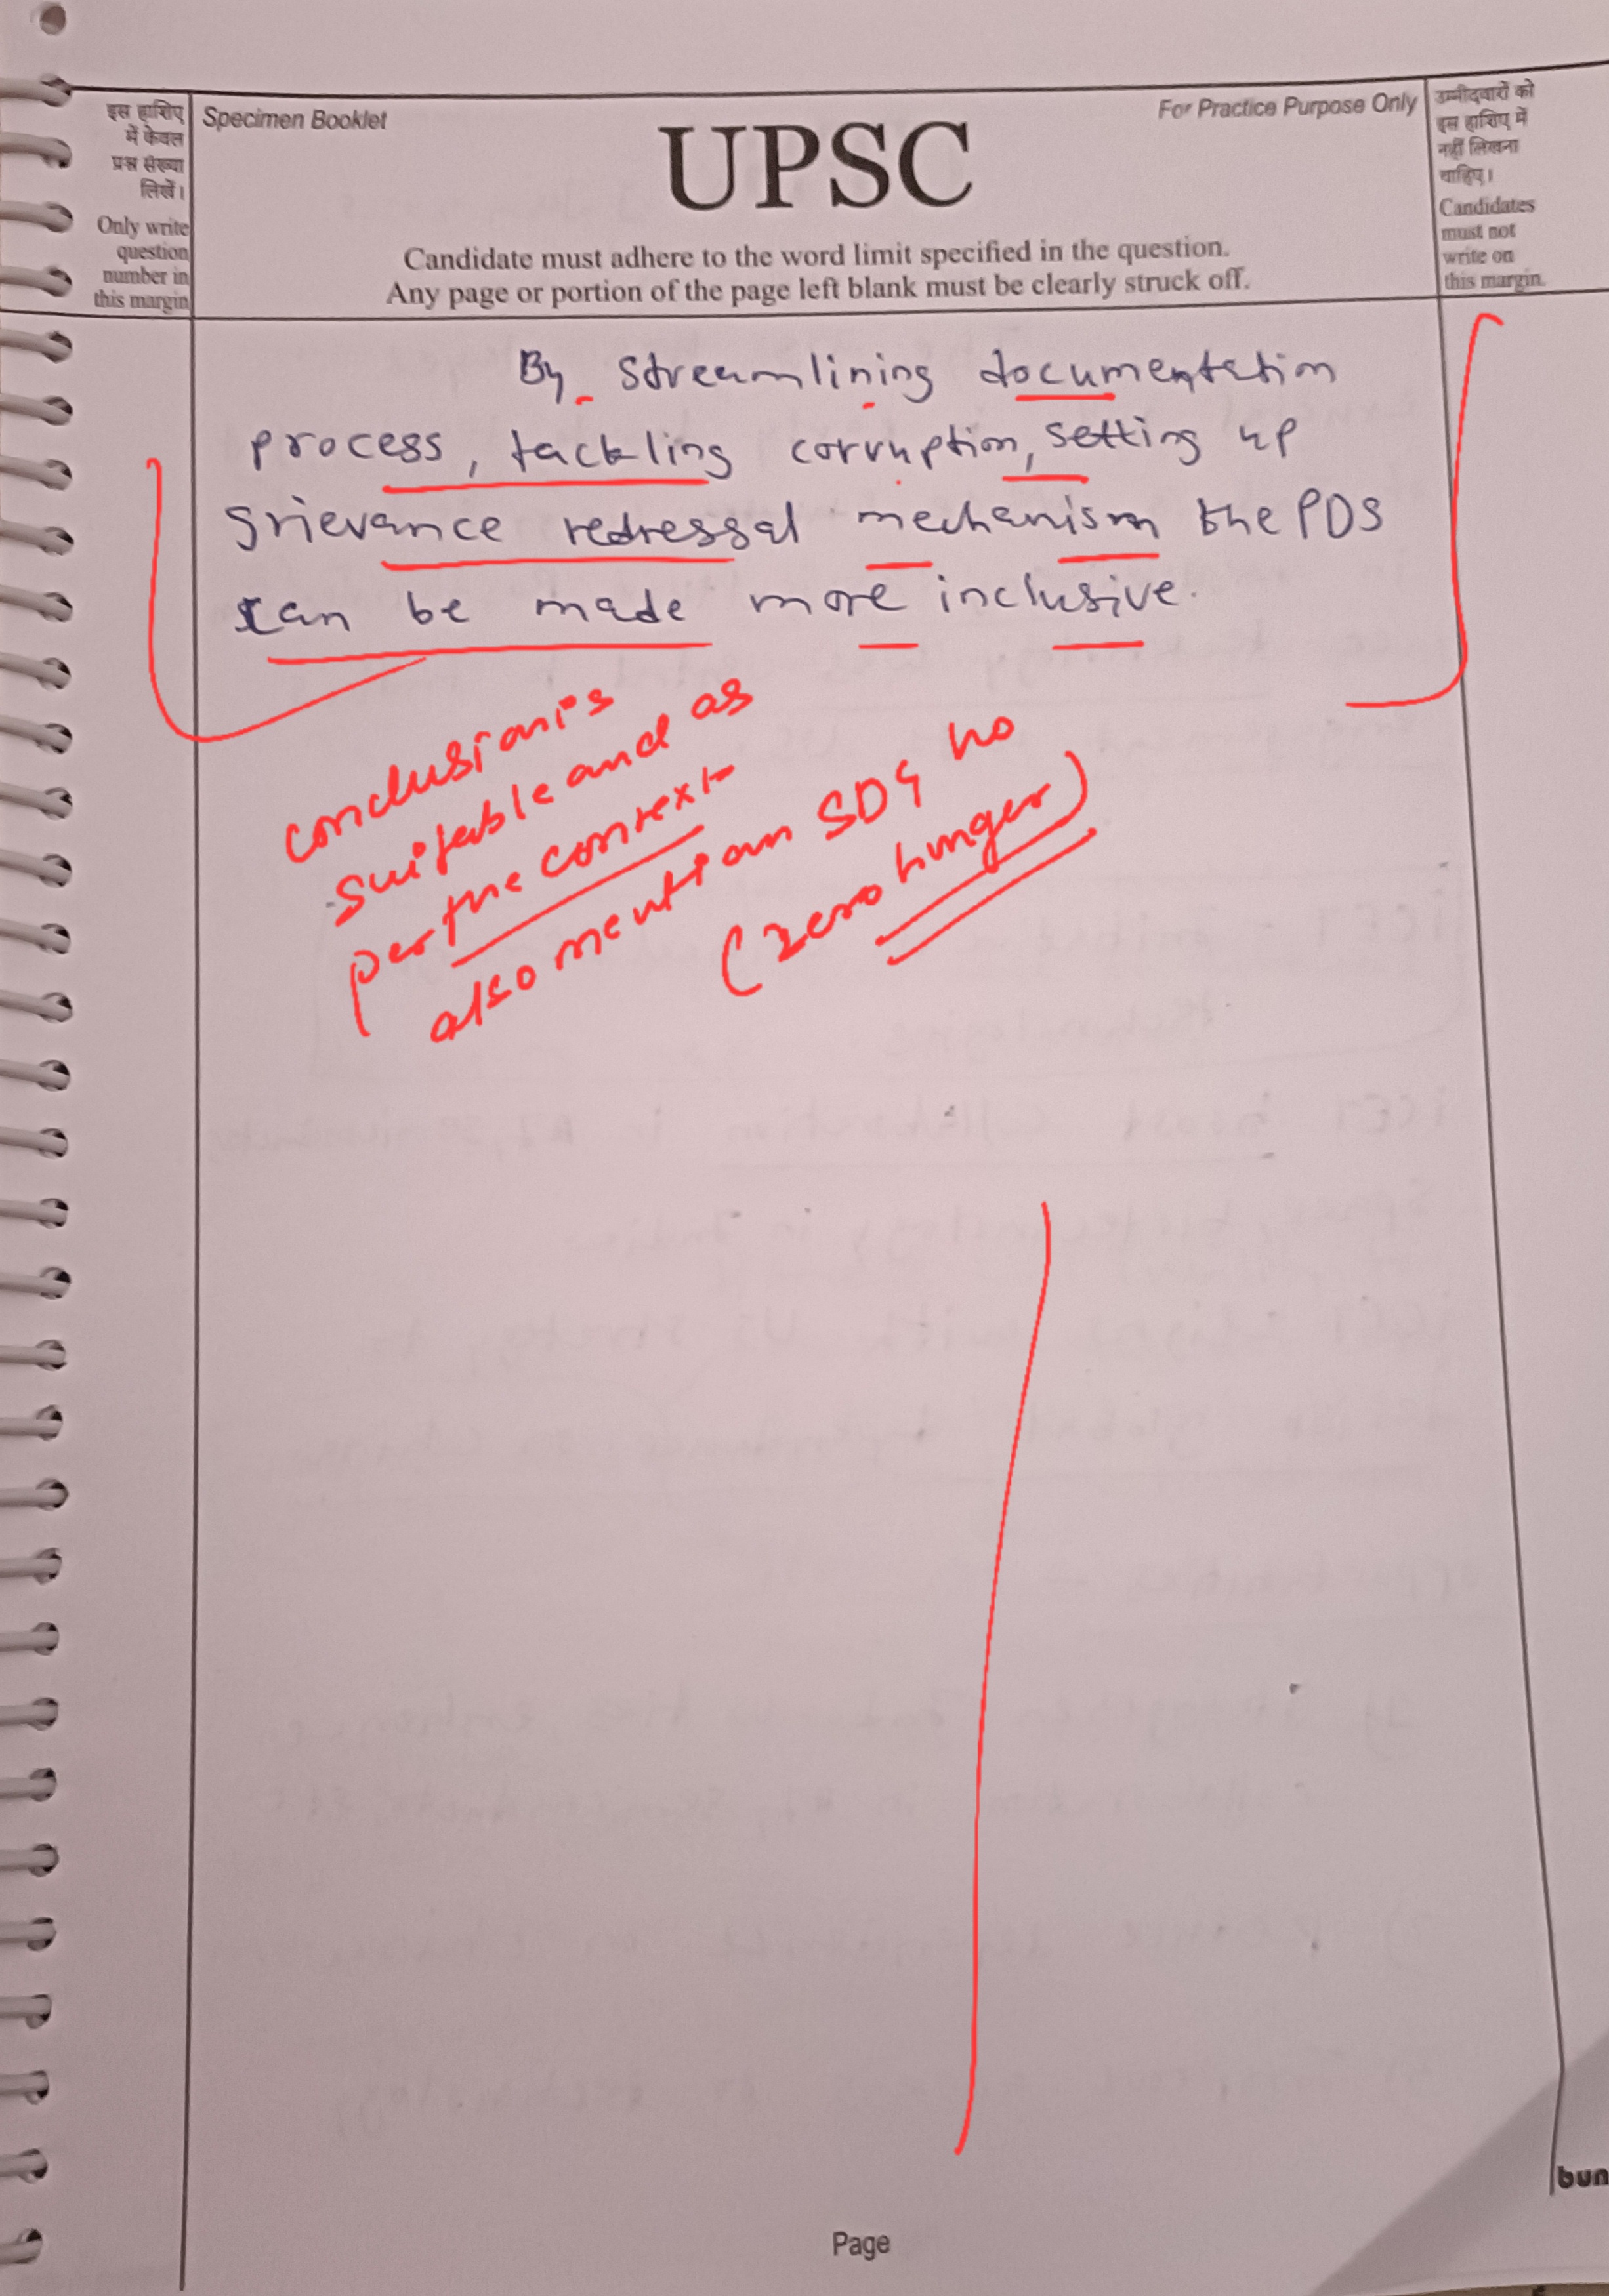 इस हाशिए
में केवल
प्रश्न संख्या
लिखें।
Only write
question
number in
this margin
Specimen Booklet
For Practice Purpose Only
UPSC
Candidate must adhere to the word limit specified in the question.
Any page or portion of the page left blank must be clearly struck off.
उम्मीदवारों को
इस हाशिए में
नहीं लिखना
चाहिए।
Candidates
must not
write on
this margin.
By streamlining documentation
process, tackling corruption, setting up
grievance redressal mechanism the PDS
can be made more inclusive.
conclusion is
suitable and as
per the context
also mention SDG no
(zero hunger)
Page
bun